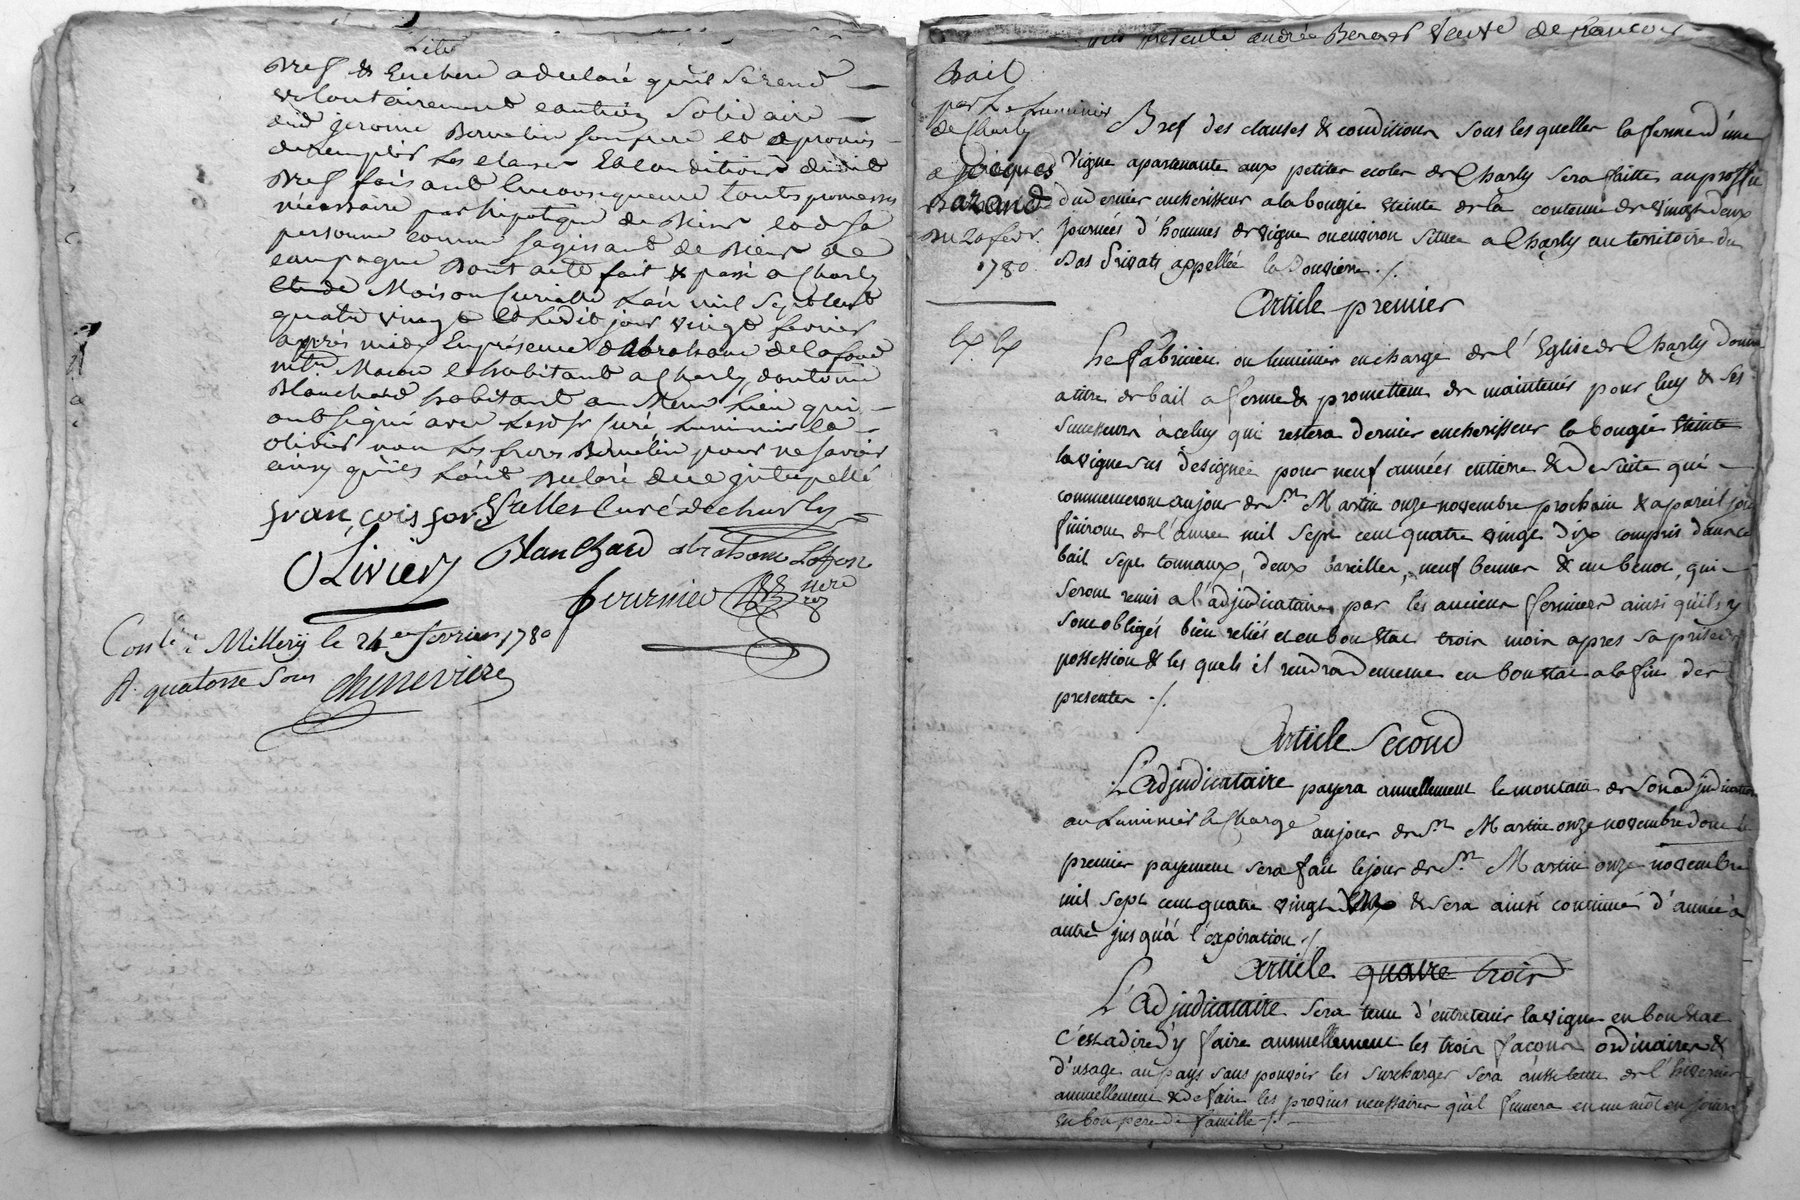 Bref & Enchere a declaré quil se rend
volontairement caution solidaire
dud jerome Bernelin son pere et a promis
de remplir les clauses Et conditions dudit
Bref faisant En consequence touts promesses
nécessaire par hipoteque de Biens et de sa
personne comme sagissant de Biens de
campagne Dont acte fait & passé a Charly
Maison Curialle L'an mil sept Cent
quatre vingt et Ledit jour vingt fevrier
après midy En présence d'Abraham de la fond
mtre Macon et habitant a Charly, d'antoine
Blanchard habitant au Meme Lieu qui
ont signé avec Led Sr Curé Luminier
olivier non Les freres Bernelin pour ne savoir
ainsy quils L'ont Declaré de ce jnterpellé
françois Curé de charly
OLivier Blanchard abraham Lafon
fournier
nore
Conlé a Millery le 24 fevrier 1780
R. quatorse sous
chenevière
presente andrée veuve de françois
Bail
par Le Luminier
de Charly
a jacques
Bazand
Du 20 fevr.
1780
Bref des clauses & conditions sous lesquelles la ferme d'une
vigne apartenante aux petites ecoles de Charly sera faitte au proffit
du dernier encherisseur a la bougie éteinte de la contenue de vingt deux
journées d'hommes de vigne ou environ située a Charly au territoire du
Bas Privats appellée la Bouviere ./.
Article premier
Le fabricien ou luminier en charge de l'Eglise de Charly donne
a titre de bail a ferme & promettent de maintenir pour luy & ses
successeurs à celuy qui restera dernier encherisseur la bougie éteinte
la vigne sus designée pour neuf années entieres & de suite qui
commenceront au jour de St Martin onze novembre prochain & a pareil jour
finiront de l'année mil sept cent quatre vingt dix compris dans ce
bail sept tonnaux, deux bareilles, neuf bennes & un benot, qui
seront remis a l'adjudicataire par les anciens fermiers ainsi quils y
sont obligés bien reliés et en bon état trois mois apres sa prise de
possession & les quels il rendra de meme en bon état a la fin des
presentes ./.
Article Second
L'adjudicataire payera annuellement le montant de son adjudication
au Luminier En Charge au jour de St Martin onze novembre dont le
premier payement sera fait le jour de St Martin onze novembre
mil sept cent quatre vingt & sera ainsi continué d'année à
autre jusqu'à l'expiration ./.
Article quatre trois
L'Adjudicataire sera tenu d'entretenir la vigne en bon état
c'est a dire d'y faire annuellement les trois façons ordinaires &
d'usage au pays sans pouvoir les surcharger sera aussi tenu de l'hiverner
annuellement & de faire les provins necessaires quil fumera en un mot en jouir
En bon pere de famille ./.